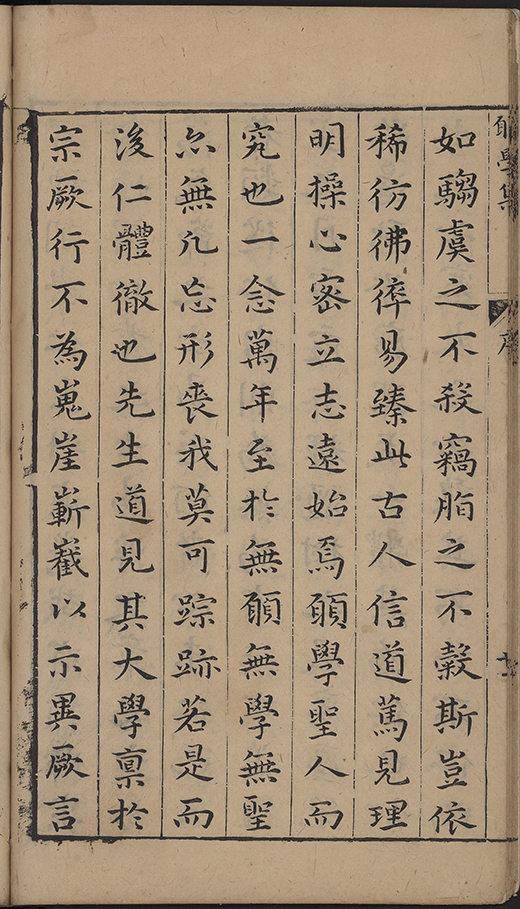 願學集
序
如騶虞之不殺竊脂之不穀斯豈依
稀彷彿倖易臻此古人信道篤見理
明操心密立志遠始焉願學聖人而
究也一念萬年至於無願無學無聖
尒無凢忘形喪我莫可踪跡若是而
後仁體徹也先生道見其大學禀於
宗厥行不為嵬崖嶄巀以示異厥言